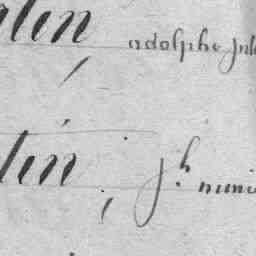 tin, adolphe Jul
tin, Jh numi